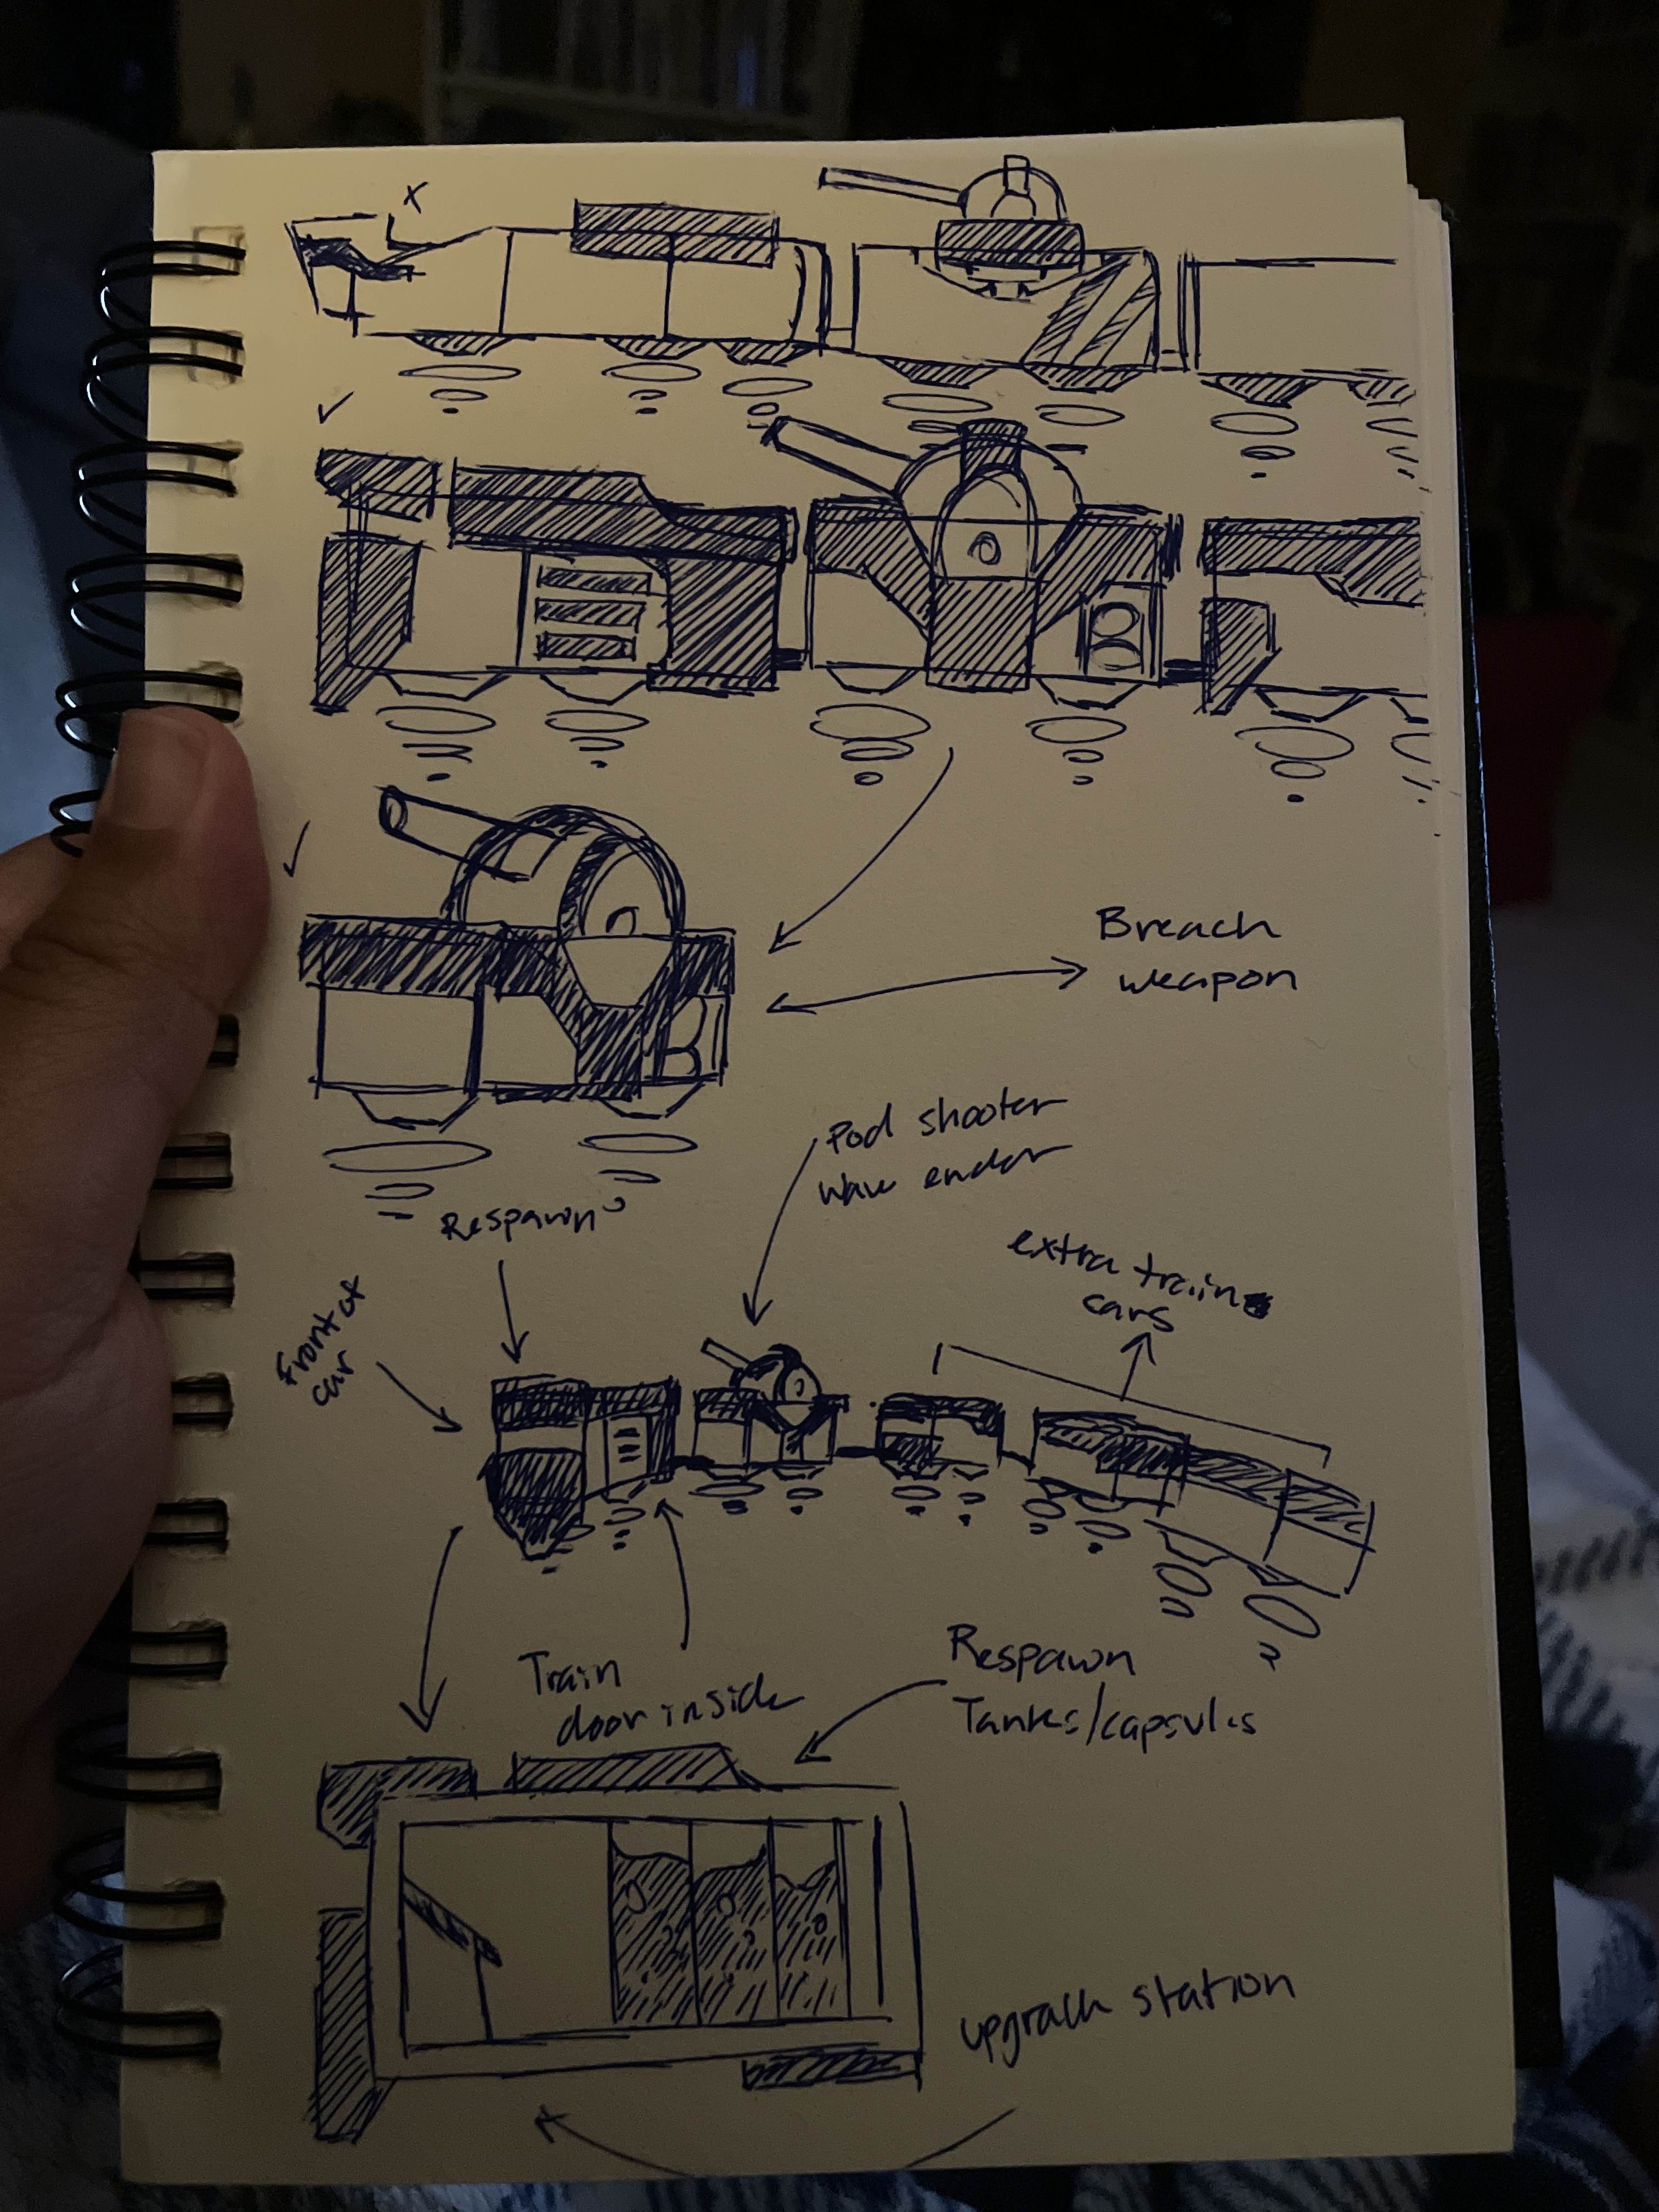 x
✓
✓
Breach
weapon
Pod shooter
wave ender
Respawn
extra train
cars
Front of
car
Train
door inside
Respawn
Tanks/capsules
upgrade station